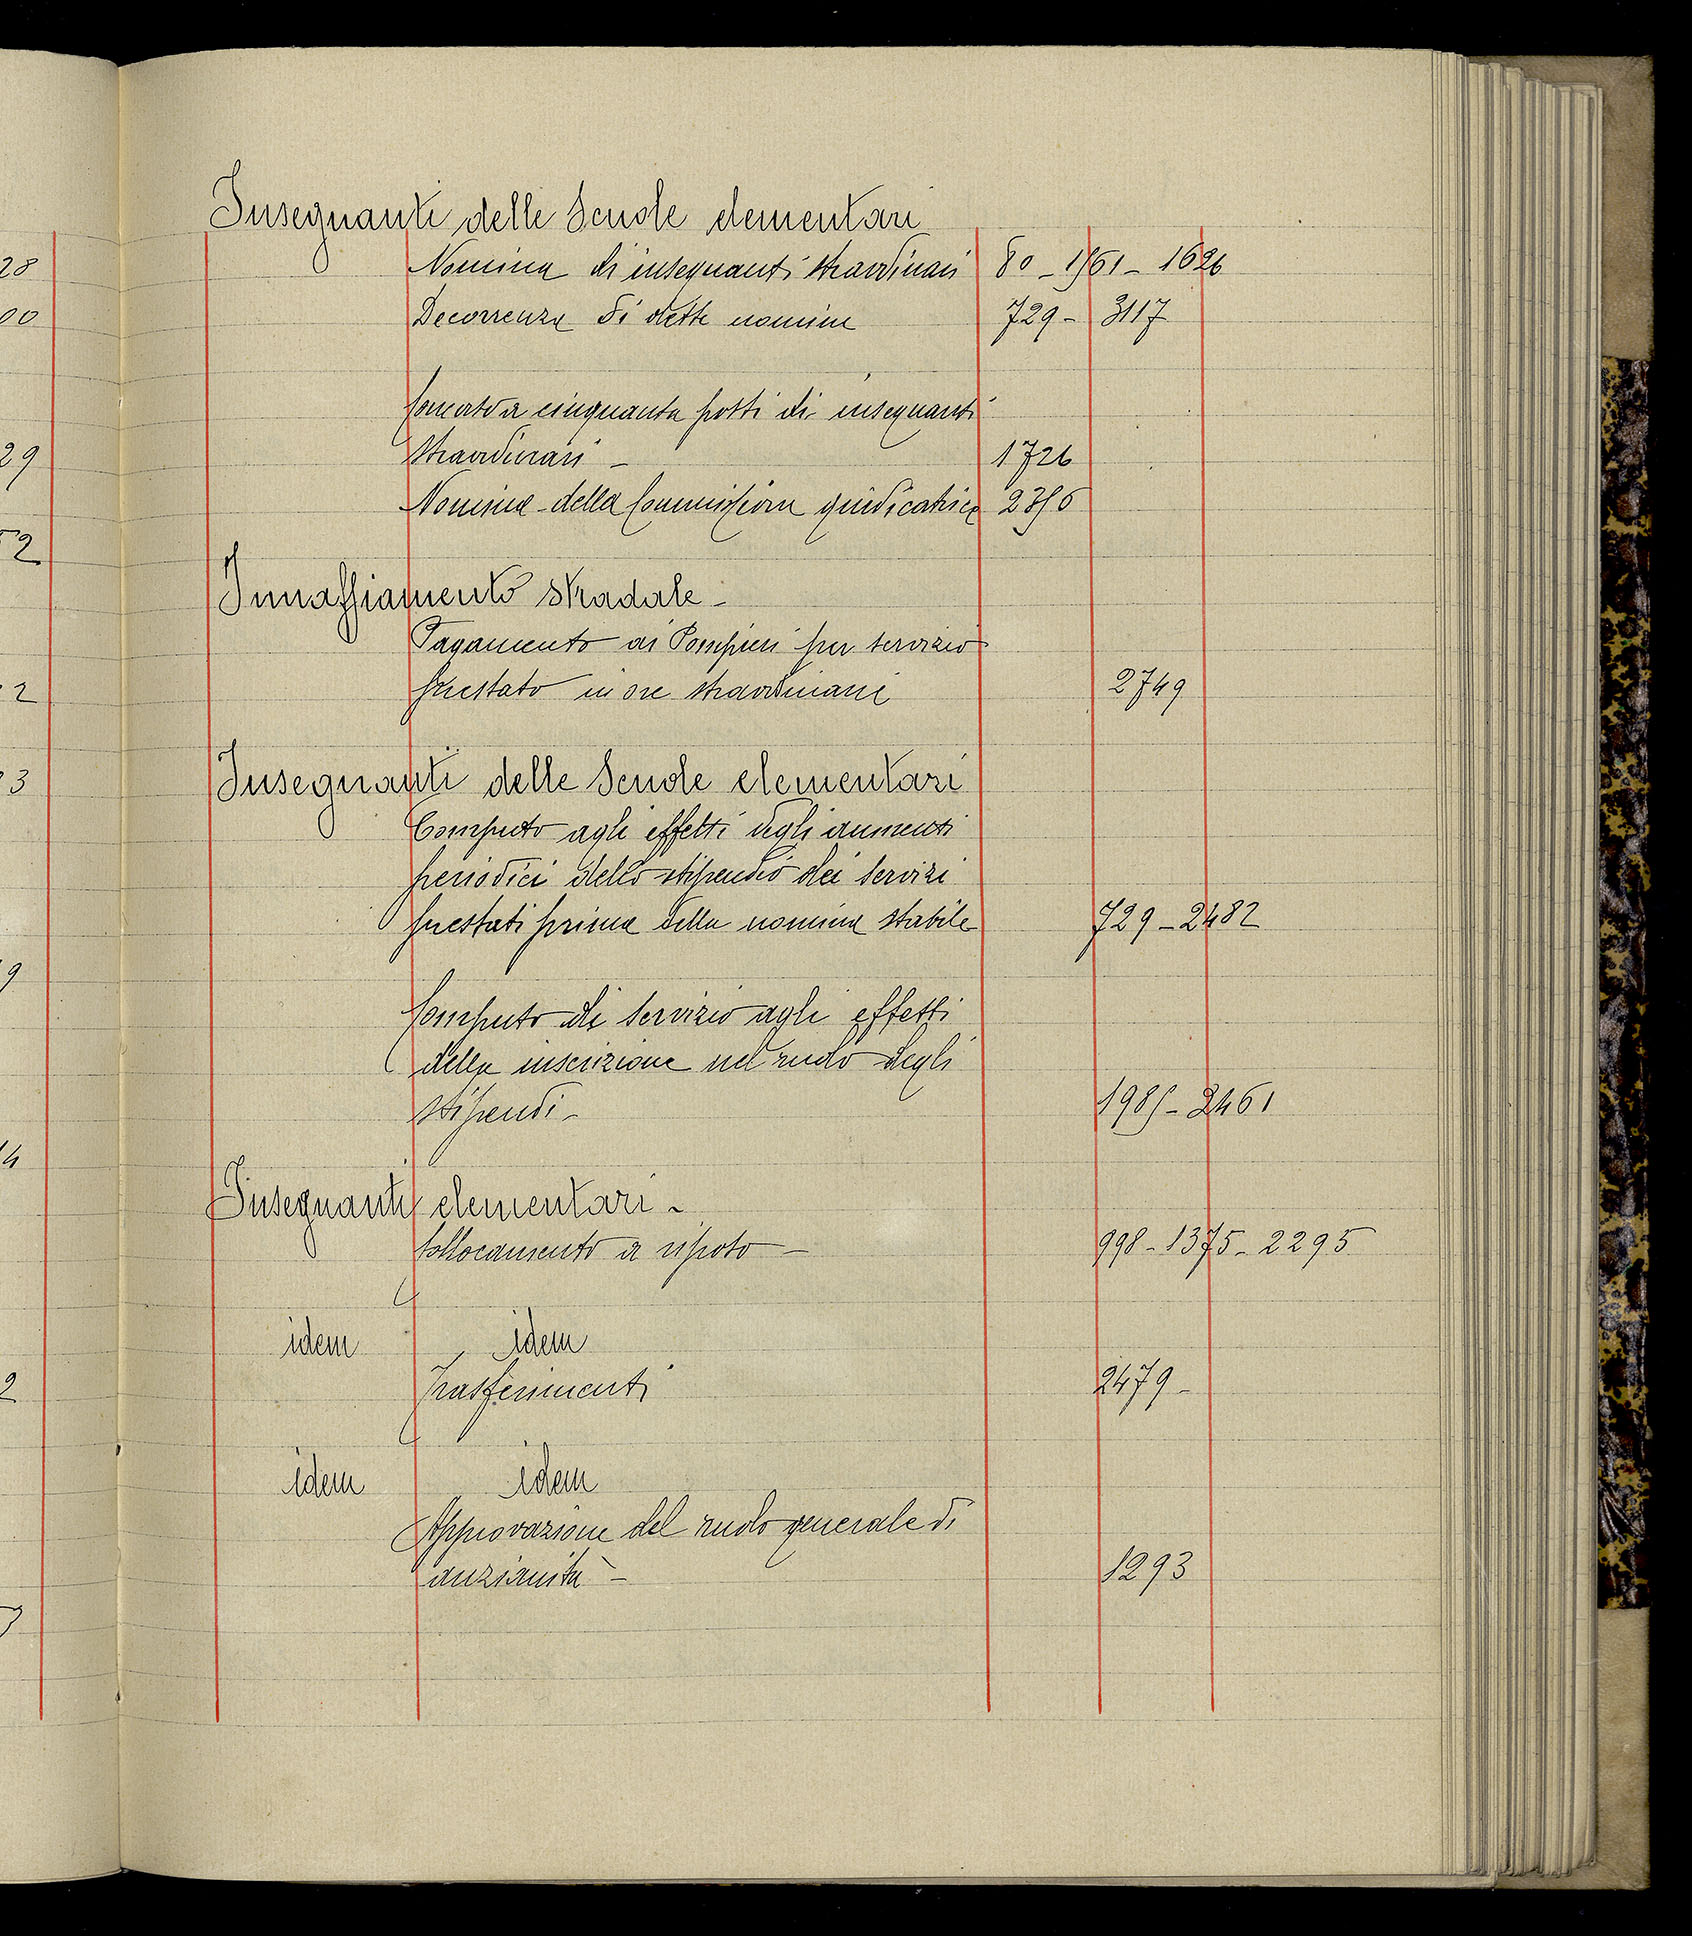 Insegnanti delle Scuole elementari
Nomina di insegnanti straordinari 80 - 1561 - 1626
Decorrenza di dette nomine 729 - 3117
Concorso a cinquanta posti di insegnanti
straordinari - 1726
Nomina della Commissione giudicatrice 2356
Innaffiamento stradale -
Pagamento ai Pompieri per servizio
prestato in ore straordinarie 2749
Insegnanti delle Scuole elementari
Computo agli effetti degli aumenti
periodici dello stipendio dei servizi
prestati prima della nomina stabile 729 - 2482
Computo di servizio agli effetti
della inscrizione nel ruolo degli
stipendi - 1985 - 2461
Insegnanti elementari -
Collocamento a riposo - 998 - 1375 - 2295
idem idem
Trasferimenti 2479 -
idem idem
Approvazione del ruolo generale di
anzianità - 1293
28
00
29
52
2
3
9
4
2